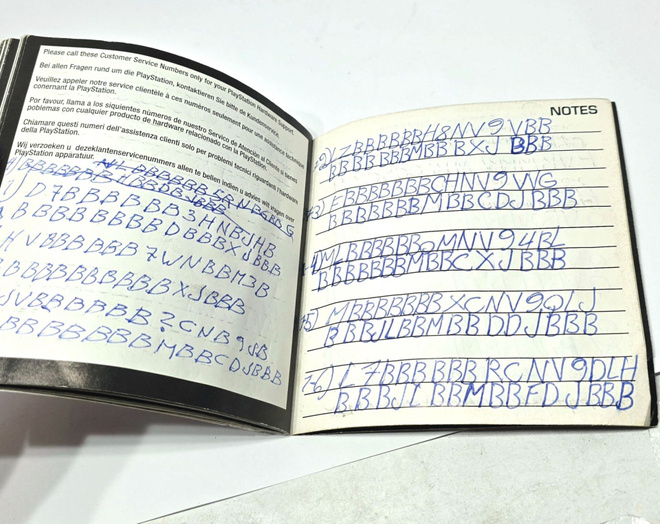 Please call these Customer Service Numbers only for your PlayStation Hardware Support
Bei allen Fragen rund um die PlayStation, kontaktieren Sie bitte den Kundenservice.
Veuillez appeler notre service clientèle à ces numéros seulement pour une assistance technique
conernant la PlayStation.
Por favour, llama a los siquientes números de nuestro Servicio de Atención al Cliente si tienes
poblemas con cualquier producto de hardware relacionado con la PlayStation.
Chiamare questi numeri dell'assistenza clienti solo per problemi tecnici riguardanti l'hardware
della PlayStation.
Wij verzoeken u dezeklantenservicenummers allen te bellen indien u advies wilt vragen over
PlayStation apparatuur.
D7BBBBBB3HNBJHB
BBBBBBBBDBBBXJBBB
HVBBBBBB7WNBBM3B
BBBBBBBBBBBXJBBB
JVBBBBBB?CNB9JB
BBBBBBBBMBBCDJBBB
NOTES
LZBBBBBBH8NV9VBB
BBBBBBBMBBBXJBBB
FBBBBBBBCHNV9VVG
BBBBBBBMBBCDJBBB
MLBBBBBBQMNV94BL
BBBBBBBMBBCXJBBB
MBBBBBBBXCNV9QLJ
BBBJLBBMBBDDJBBB
L7BBBBBBRCNV9DLH
BBBJLBBMBBFDJBBB